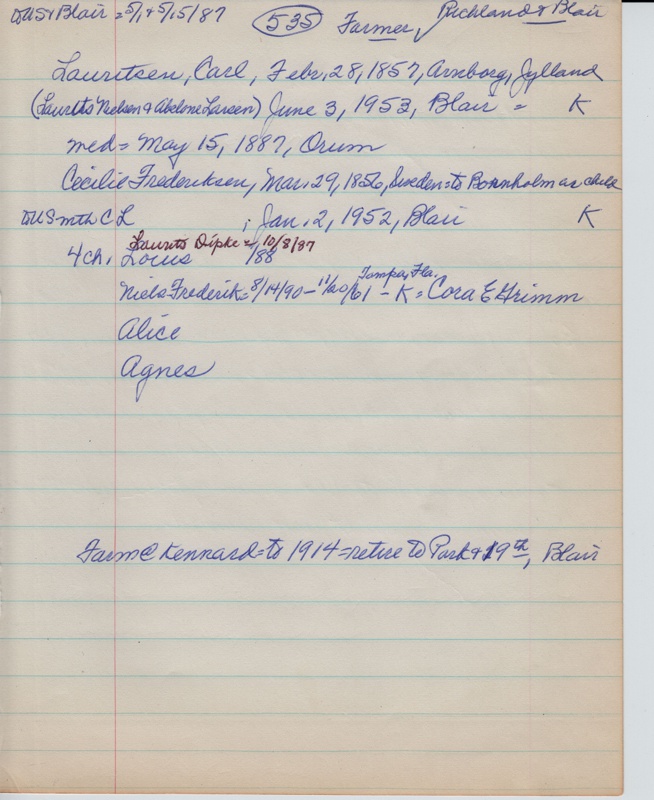 to US & Blair = 5/1 & 5/15/87 535 Farmer, Richland & Blair
Lauritsen, Carl, Febr. 28, 1857, Arnborg, Jylland
(Laurits Nielsen & Abelone Larsen) June 3, 1953, Blair = K
med = May 15, 1887, Orum
Cecilie Frederiksen, Mar. 29, 1856, Sweden = to Bornholm as child
to US mth C L ; Jan. 2, 1952, Blair K
Laurits Dipke = 10/8/87
4 ch. Louis /88
Tampa, Fla.
Niels Frederik = 8/14/90 - 11/20/61 - K = Cora E Grimm
Alice
Agnes
Farm @ Kennard = to 1914 = retire to Park & 19th, Blair